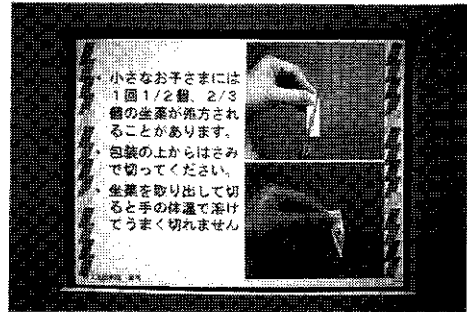 ・小さなお子さまには
1回1/2個、2/3
個の坐薬が処方され
ることがあります。
・包装の上からはさみ
で切ってください。
・坐薬を取り出して切
ると手の体温で溶け
てうまく切れません